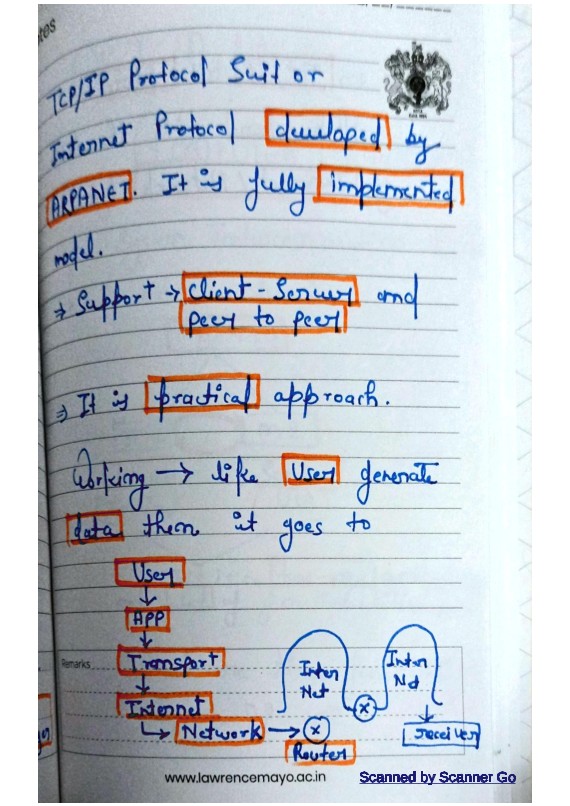 tes
TCP/IP Protocol Suit or
Internet Protocol developed by
ARPANET. It is fully implemented
model.
⇒ Support → client-Server and
peer to peer
⇒ It is practical approach.
Working → like User generate
data then it goes to
User
↓
APP
↓
Transport
↓
Internet
↳ Network → ⓧ
Router
Remarks
Inter
Net
ⓧ
Inter
Net
↓
receiver
www.lawrencemayo.ac.in
Scanned by Scanner Go